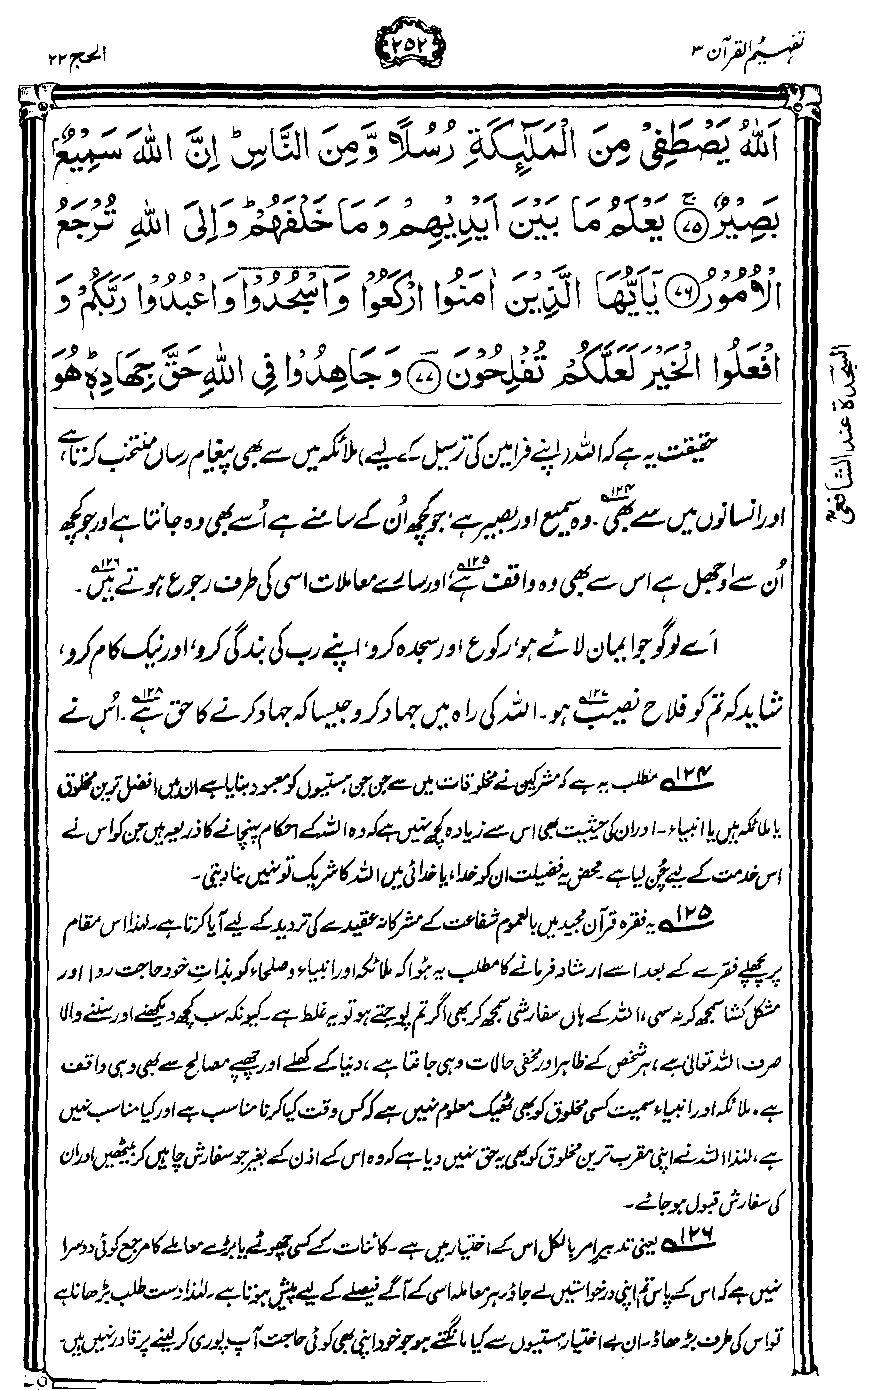 تفہیم القرآن ۳
۲۵۲
الحج ۲۲
اَللّٰهُ يَصْطَفِيْ مِنَ الْمَلٰٓئِكَةِ رُسُلًا وَّمِنَ النَّاسِ ؕ اِنَّ اللّٰهَ سَمِيْعٌۢ
بَصِيْرٌ ۚ﴿۷۵﴾ يَعْلَمُ مَا بَيْنَ اَيْدِيْهِمْ وَمَا خَلْفَهُمْ ؕ وَاِلَى اللّٰهِ تُرْجَعُ
الْاُمُوْرُ ﴿۷۶﴾ يٰٓاَيُّهَا الَّذِيْنَ اٰمَنُوا ارْكَعُوْا وَاسْجُدُوْا وَاعْبُدُوْا رَبَّكُمْ وَ
افْعَلُوا الْخَيْرَ لَعَلَّكُمْ تُفْلِحُوْنَ ﴿۷۷﴾ وَجَاهِدُوْا فِي اللّٰهِ حَقَّ جِهَادِهٖ ؕ هُوَ
السجدۃ عند الشافعیؒ
حقیقت یہ ہے کہ اللہ (اپنے فرامین کی ترسیل کے لیے) ملائکہ میں سے بھی پیغام رساں منتخب کرتا ہے
اور انسانوں میں سے بھی۱۲۴۔ وہ سمیع اور بصیر ہے، جو کچھ اُن کے سامنے ہے اُسے بھی وہ جانتا ہے اور جو کچھ
اُن سے اوجھل ہے اس سے بھی وہ واقف ہے۱۲۵، اور سارے معاملات اسی کی طرف رجوع ہوتے ہیں۱۲۶۔
اے لوگو جو ایمان لائے ہو، رکوع اور سجدہ کرو، اپنے رب کی بندگی کرو، اور نیک کام کرو،
شاید کہ تم کو فلاح نصیب ہو۱۲۷۔ اللہ کی راہ میں جہاد کرو جیسا کہ جہاد کرنے کا حق ہے۱۲۸۔ اُس نے
۱۲۴ مطلب یہ ہے کہ مشرکین نے مخلوقات میں سے جن جن ہستیوں کو معبود بنایا ہے ان میں افضل ترین مخلوق
یا ملائکہ ہیں یا انبیاء۔ اور ان کی حیثیت بھی اس سے زیادہ کچھ نہیں ہے کہ وہ اللہ کے احکام پہنچانے کا ذریعہ ہیں جن کو اس نے
اس خدمت کے لیے چُن لیا ہے۔ محض یہ فضیلت ان کو خدا، یا خدائی میں اللہ کا شریک تو نہیں بنا دیتی۔
۱۲۵ یہ فقرہ قرآن مجید میں بالعموم شفاعت کے مشرکانہ عقیدے کی تردید کے لیے آیا کرتا ہے۔ لہٰذا اس مقام
پر پچھلے فقرے کے بعد اسے ارشاد فرمانے کا مطلب یہ ہوا کہ ملائکہ اور انبیاء و صلحاء کو بذاتِ خود حاجت روا اور
مشکل کشا سمجھ کر نہ سہی، اللہ کے ہاں سفارشی سمجھ کر بھی اگر تم پوجتے ہو تو یہ غلط ہے۔ کیونکہ سب کچھ دیکھنے اور سننے والا
صرف اللہ تعالیٰ ہے، ہر شخص کے ظاہر اور مخفی حالات وہی جانتا ہے، دنیا کے کھلے اور چھپے مصالح سے بھی وہی واقف
ہے، ملائکہ اور انبیاء سمیت کسی مخلوق کو بھی ٹھیک معلوم نہیں ہے کہ کس وقت کیا کرنا مناسب ہے اور کیا مناسب نہیں
ہے، لہٰذا اللہ نے اپنی مقرب ترین مخلوق کو بھی یہ حق نہیں دیا ہے کہ وہ اس کے اذن کے بغیر جو سفارش چاہیں کر بیٹھیں اور ان
کی سفارش قبول ہو جائے۔
۱۲۶ یعنی تدبیرِ امر بالکل اس کے اختیار میں ہے۔ کائنات کے کسی چھوٹے یا بڑے معاملے کا مرجع کوئی دوسرا
نہیں ہے کہ اس کے پاس تم اپنی درخواستیں لے جاؤ۔ ہر معاملہ اسی کے آگے فیصلے کے لیے پیش ہوتا ہے۔ لہٰذا دست طلب بڑھانا ہے
تو اس کی طرف بڑھاؤ۔ ان بے اختیار ہستیوں سے کیا مانگتے ہو جو خود اپنی بھی کوئی حاجت آپ پوری کر لینے پر قادر نہیں ہیں۔